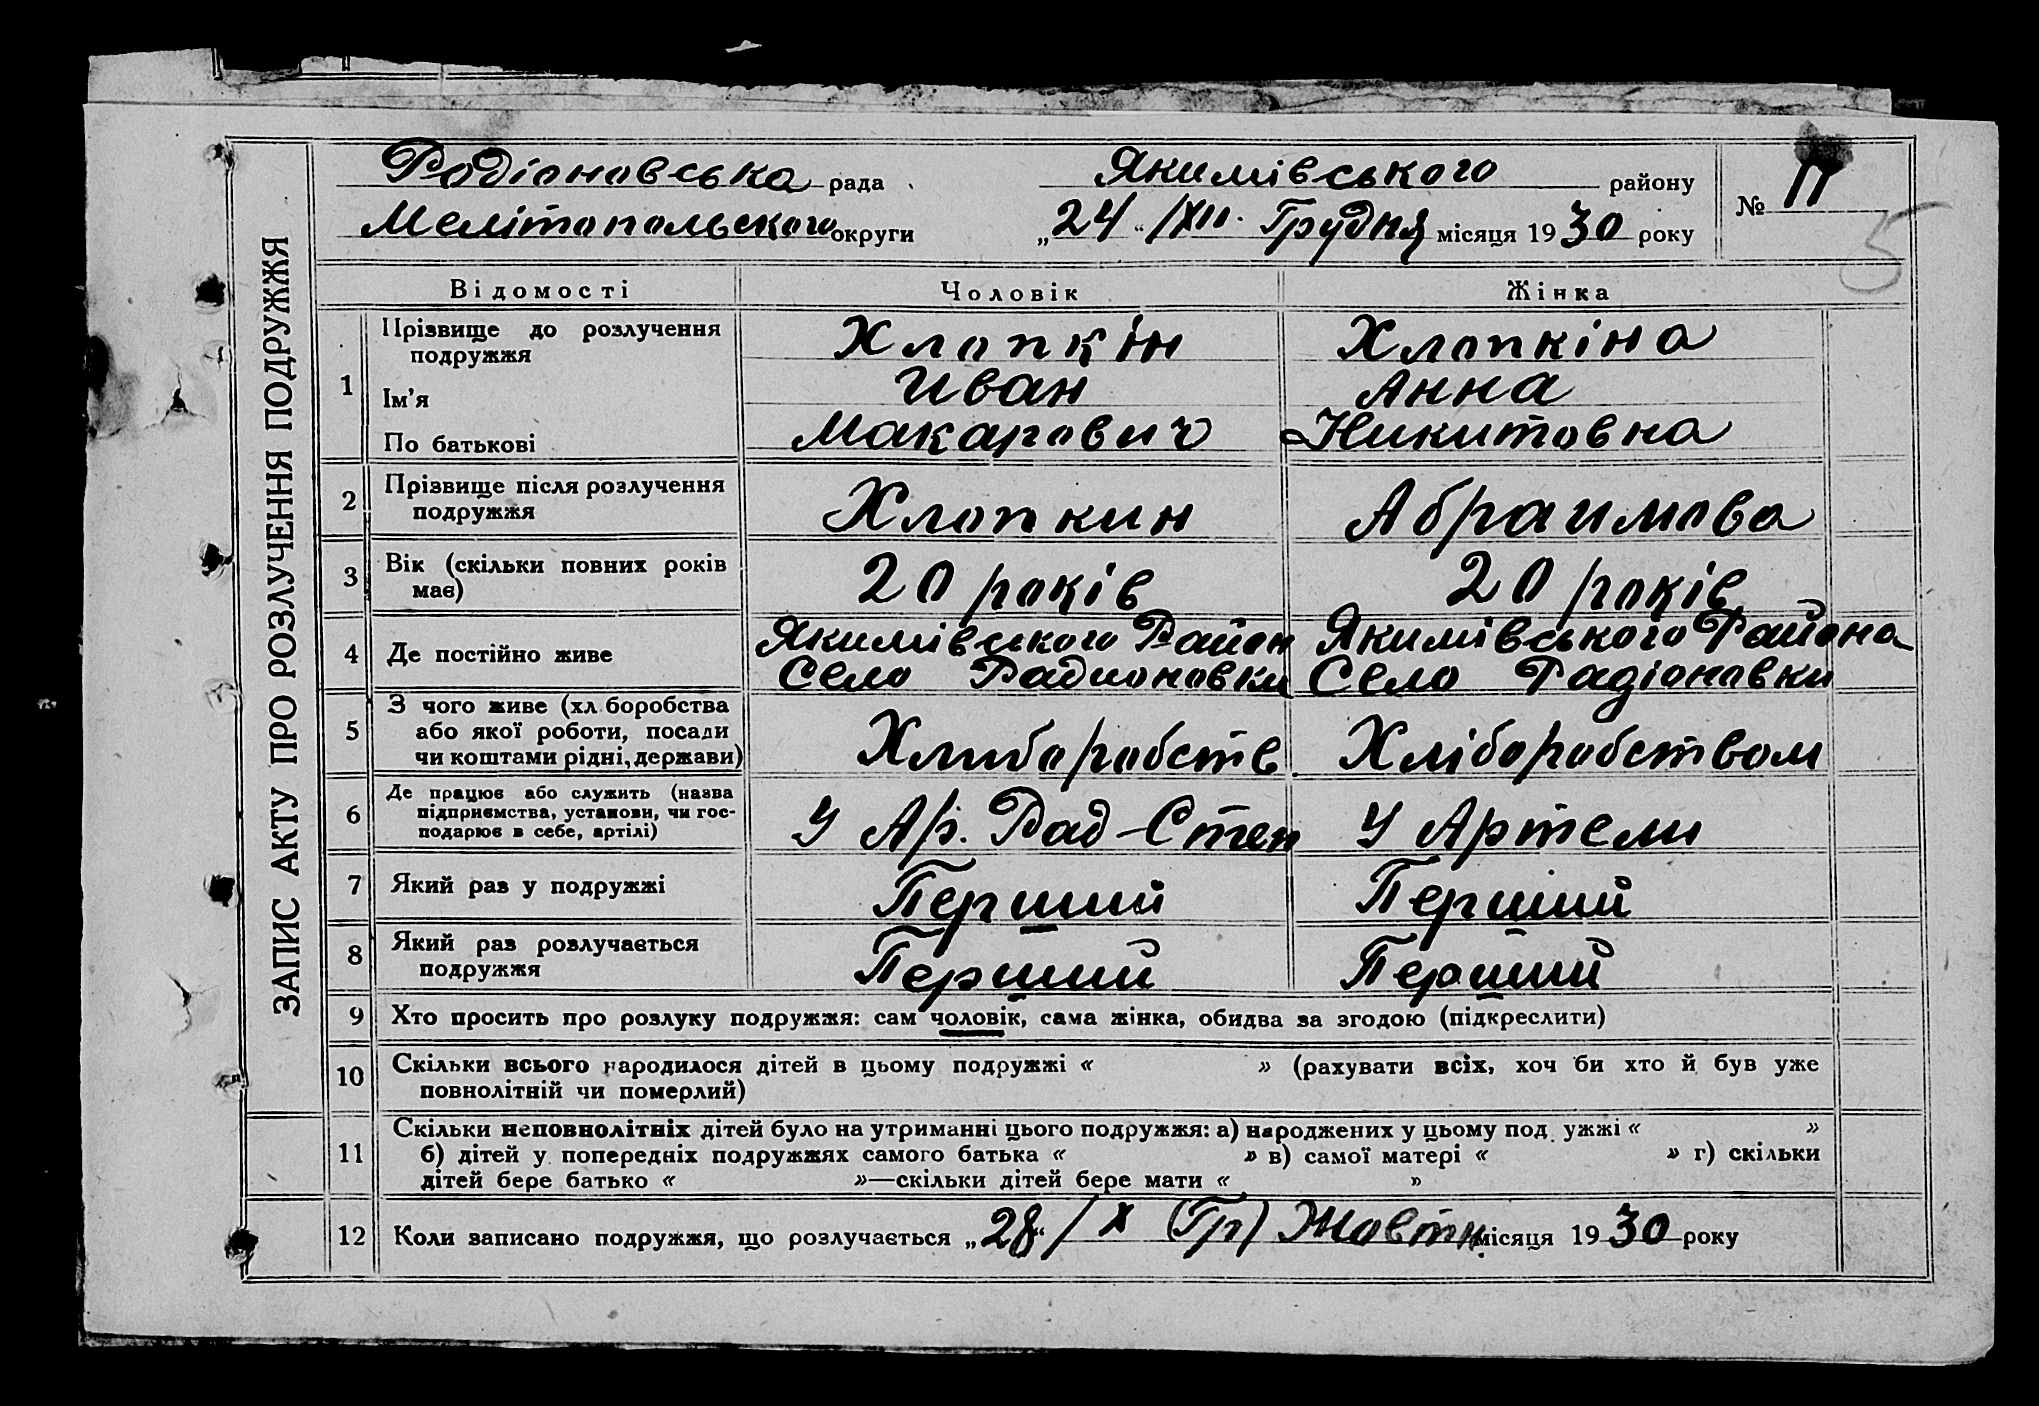 ЗАПИС АКТУ ПРО РОЗЛУЧЕННЯ ПОДРУЖЖЯ
Родіоновська рада Якимівського району № 11
Мелітопольского округи „24“ /XII. Грудня місяця 1930 року
5
Відомості Чоловік Жінка
1 Прізвище до розлучення подружжя Хлопкін Хлопкіна
Ім’я Иван Анна
По батькові Макарович Никитовна
2 Прізвище після розлучення подружжя Хлопкин Абраимова
3 Вік (скільки повних років має) 20 років 20 років
4 Де постійно живе Якимівського Район Село Радионовки Якимівського Района Село Радіоновки
5 З чого живе (хл боробства або якої роботи, посади чи коштами рідні, держави) Хлиборобств. Хліборобством
6 Де працює або служить (назва підприємства, установи, чи господарює в себе, артілі) У Ар. Рад-Степ У Артели
7 Який раз у подружжі Перший Перший
8 Який раз розлучається подружжя Перший Перший
9 Хто просить про розлуку подружжя: сам чоловік, сама жінка, обидва за згодою (підкреслити)
10 Скільки всього народилося дітей в цьому подружжі « » (рахувати всіх, хоч би хто й був уже
повнолітній чи померлий)
11 Скільки неповнолітніх дітей було на утриманні цього подружжя: а) народжених у цьому под ужжі « »
б) дітей у попередніх подружжях самого батька « » в) самої матері « » г) скільки
дітей бере батько « »—скільки дітей бере мати « »
12 Коли записано подружжя, що розлучається „28“/X (Гр) Жовтн місяця 1930 року